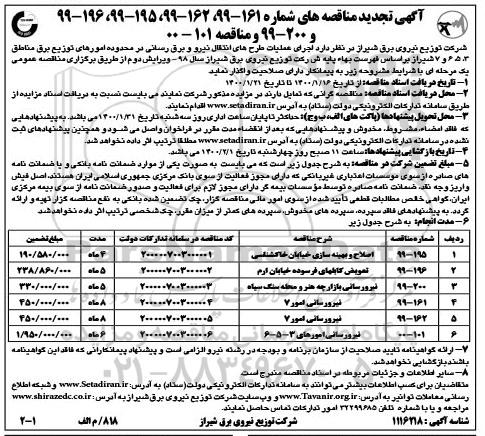 آگهی تجدید مناقصه های شماره ۱۶۱-۹۹، ۱۶۲-۹۹، ۱۹۵-۹۹، ۱۹۶-۹۹
و ۲۰۰-۹۹ و مناقصه ۱۰۱-۰۰
شرکت توزیع نیروی برق شیراز در نظر دارد اجرای عملیات طرح های انتقال نیرو و برق رسانی در محدوده امورهای توزیع برق مناطق
۳، ۵، ۶ و ۷ شیراز براساس فهرست بهاء پایه شرکت توزیع نیروی برق شیراز سال ۹۸ - ویرایش دوم از طریق برگزاری مناقصه عمومی
یک مرحله ای با شرایط مشروحه زیر به پیمانکار دارای صلاحیت واگذار نماید
۱- تاریخ دریافت اسناد مناقصه: از تاریخ ۱۴۰۰/۱/۱۶ تا تاریخ ۱۴۰۰/۱/۲۱
۲- محل دریافت اسناد مناقصه: مناقصه گرانی که تمایل دارند در مزایده مذکور شرکت نمایند می بایست نسبت به دریافت اسناد مزایده از
طریق سامانه تدارکات الکترونیکی دولت (ستاد) به آدرس www.setadiran.ir اقدام نمایند.
۳- محل تحویل پیشنهادها (پاکت های الف، ب و ج): حداکثر تا پایان ساعت اداری روز سه شنبه به تاریخ ۱۴۰۰/۱/۳۱ می باشد. به پیشنهادهایی
که فاقد امضاء، مشروط، مخدوش و پیشنهادهایی که بعد از انقضاء مدت مقرر در فراخوان واصل می شود و همچنین پیشنهادهای ثبت
نشده در سامانه تدارکات الکترونیکی دولت (ستاد) به آدرس www.setadiran.ir مطلقا ترتیب اثر داده نخواهد شد.
۴- تاریخ بازگشایی پیشنهادها: ساعت ۱۱ صبح روز چهارشنبه تاریخ ۱۴۰۰/۲/۱ می باشد.
۵- مبلغ تضمین شرکت در مناقصه: به شرح جدول زیر است که می بایست به صورت یکی از موارد ضمانت نامه بانکی و یا ضمانت نامه
های صادره از سوی مؤسسات اعتباری غیربانکی که دارای مجوز فعالیت از سوی بانک مرکزی جمهوری اسلامی ایران هستند، اصل فیش
واریز وجه نقد، ضمانت نامه صادره توسط مؤسسات بیمه گر دارای مجوز لازم برای فعالیت و صدور ضمانت نامه از سوی بیمه مرکزی
ایران، گواهی خالص مطالبات قطعی تأیید شده از سوی امور مالی مناقصه گزار، چک تضمین شده بانکی به نفع مناقصه گزار تهیه و ارائه
گردد. به پیشنهادهای فاقد سپرده، سپرده های مخدوش، سپرده های کمتر از میزان مقرر، چک شخصی ترتیب اثر داده نخواهد شد.
۶- مدت انجام: به شرح جدول زیر
ردیف شماره مناقصه شرح مناقصه کد مناقصه در سامانه تدارکات دولت مدت مبلغ تضمین
۱ ۹۹-۱۹۵ اصلاح و بهینه سازی خیابان خاکشناسی ۲۰۰۰۰۰۷۰۰۳۰۰۰۰۰۱ ۴ ماه ۱۹۰/۵۸۰/۰۰۰
۲ ۹۹-۱۹۶ تعویض کابلهای فرسوده خیابان ارم ۲۰۰۰۰۰۷۰۰۳۰۰۰۰۰۲ ۵ ماه ۲۳۸/۸۶۰/۰۰۰
۳ ۹۹-۲۰۰ نیرورسانی بازارچه هنر و محله سنگ سیاه ۲۰۰۰۰۰۷۰۰۳۰۰۰۰۰۳ ۵ ماه ۳۳۰/۰۰۰/۰۰۰
۴ ۹۹-۱۶۱ نیرورسانی امور ۷ ۲۰۰۰۰۰۷۰۰۳۰۰۰۰۰۴ ۸ ماه ۴۵۰/۰۰۰/۰۰۰
۵ ۹۹-۱۶۲ نیرورسانی امور ۷ ۲۰۰۰۰۰۷۰۰۳۰۰۰۰۰۵ ۸ ماه ۴۵۰/۰۰۰/۰۰۰
۶ ۰۰-۱۰۱ نیرورسانی امورهای ۳-۵-۶ ۲۰۰۰۰۰۷۰۰۳۰۰۰۰۰۶ ۶ ماه ۱/۹۵۰/۰۰۰/۰۰۰
۷- ارائه گواهینامه تایید صلاحیت از سازمان برنامه و بودجه در رشته نیرو الزامی است و پیشنهاد پیمانکارانی که فاقد این گواهینامه
باشند بازگشایی نخواهد شد.
۸- سایر اطلاعات و جزئیات مربوطه در اسناد مناقصه مندرج است.
متقاضیان برای کسب اطلاعات بیشتر می توانند به سامانه تدارکات الکترونیکی دولت (ستاد) به آدرس: www.Setadiran.ir و شبکه اطلاع
رسانی معاملات توانیر به آدرس: www.Tavanir.org.ir و وب سایت شرکت توزیع نیروی برق شیراز به آدرس: www.shirazedc.co.ir
مراجعه و یا با شماره تلفن ۳۲۲۹۹۶۸۵ امور تدارکات تماس حاصل نمایند.
شناسه آگهی: ۱۱۱۶۲۱۸ شرکت توزیع نیروی برق شیراز ۸۱۸/م الف ۲-۱